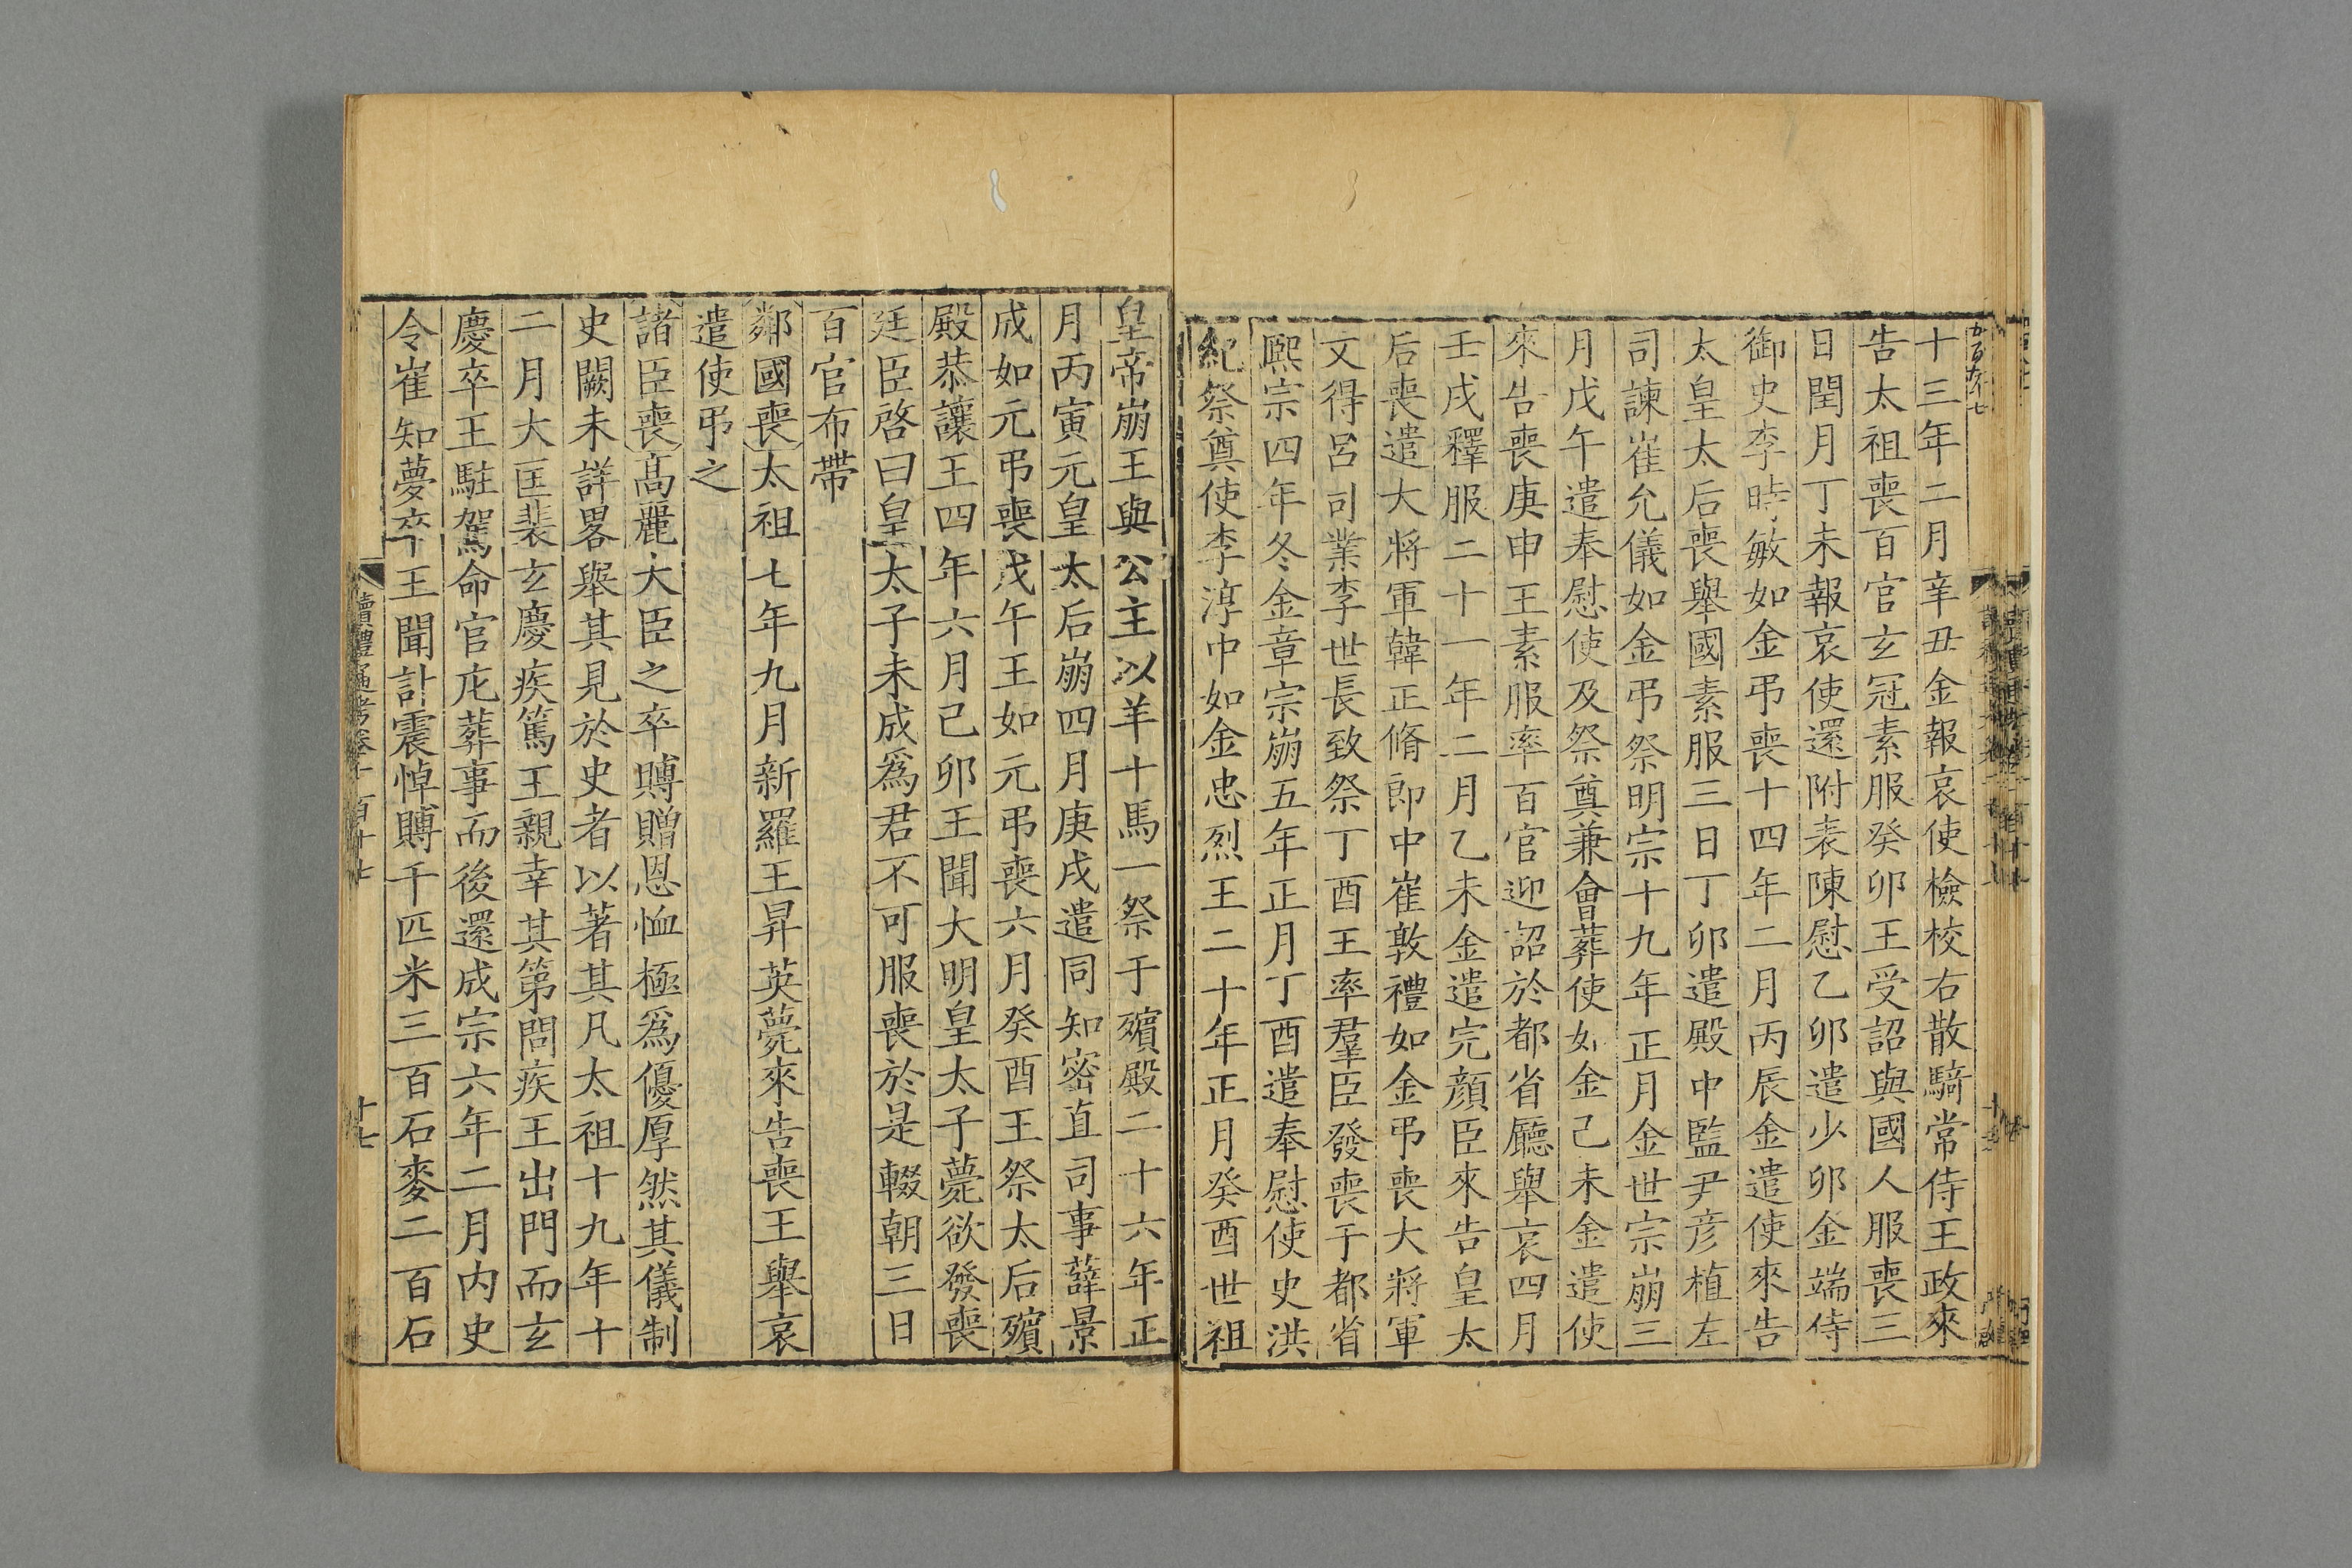 十三年二月辛丑金報哀使檢校右散騎常侍王政來
告太祖喪百官玄冠素服癸卯王受詔與國人服喪三
日閏月丁未報哀使還附表陳慰乙卯遣少卿金端侍
御史李時敏如金弔喪十四年二月丙辰金遣使來告
太皇太后喪舉國素服三日丁卯遣殿中監尹彦植左
司諫崔允儀如金弔祭明宗十九年正月金世宗崩三
月戊午遣奉慰使及祭奠兼會葬使如金己未金遣使
來告喪庚申王素服率百官迎詔於都省廳舉哀四月
壬戌釋服二十一年二月乙未金遣完顏臣來告皇太
后喪遣大將軍韓正脩郎中崔敦禮如金弔喪大將軍
文得呂司業李世長致祭丁酉王率羣臣發喪于都省
熙宗四年冬金章宗崩五年正月丁酉遣奉慰使史洪
紀祭奠使李淳中如金忠烈王二十年正月癸酉世祖
皇帝崩王與公主以羊十馬一祭于殯殿二十六年正
月丙寅元皇太后崩四月庚戌遣同知密直司事薛景
成如元弔喪戊午王如元弔喪六月癸酉王祭太后殯
殿恭讓王四年六月己卯王聞大明皇太子薨欲發喪
廷臣啓曰皇太子未成爲君不可服喪於是輟朝三日
百官布帶
鄰國喪太祖七年九月新羅王昇英薨來告喪王舉哀
遣使弔之
諸臣喪高麗大臣之卒賻贈恩恤極爲優厚然其儀制
史闕未詳畧舉其見於史者以著其凡太祖十九年十
二月大匡裴玄慶疾篤王親幸其第問疾王出門而玄
慶卒王駐駕命官庀葬事而後還成宗六年二月内史
令崔知夢卒王聞訃震悼賻千匹米三百石麥二百石
讀禮通考卷一百十七
十七